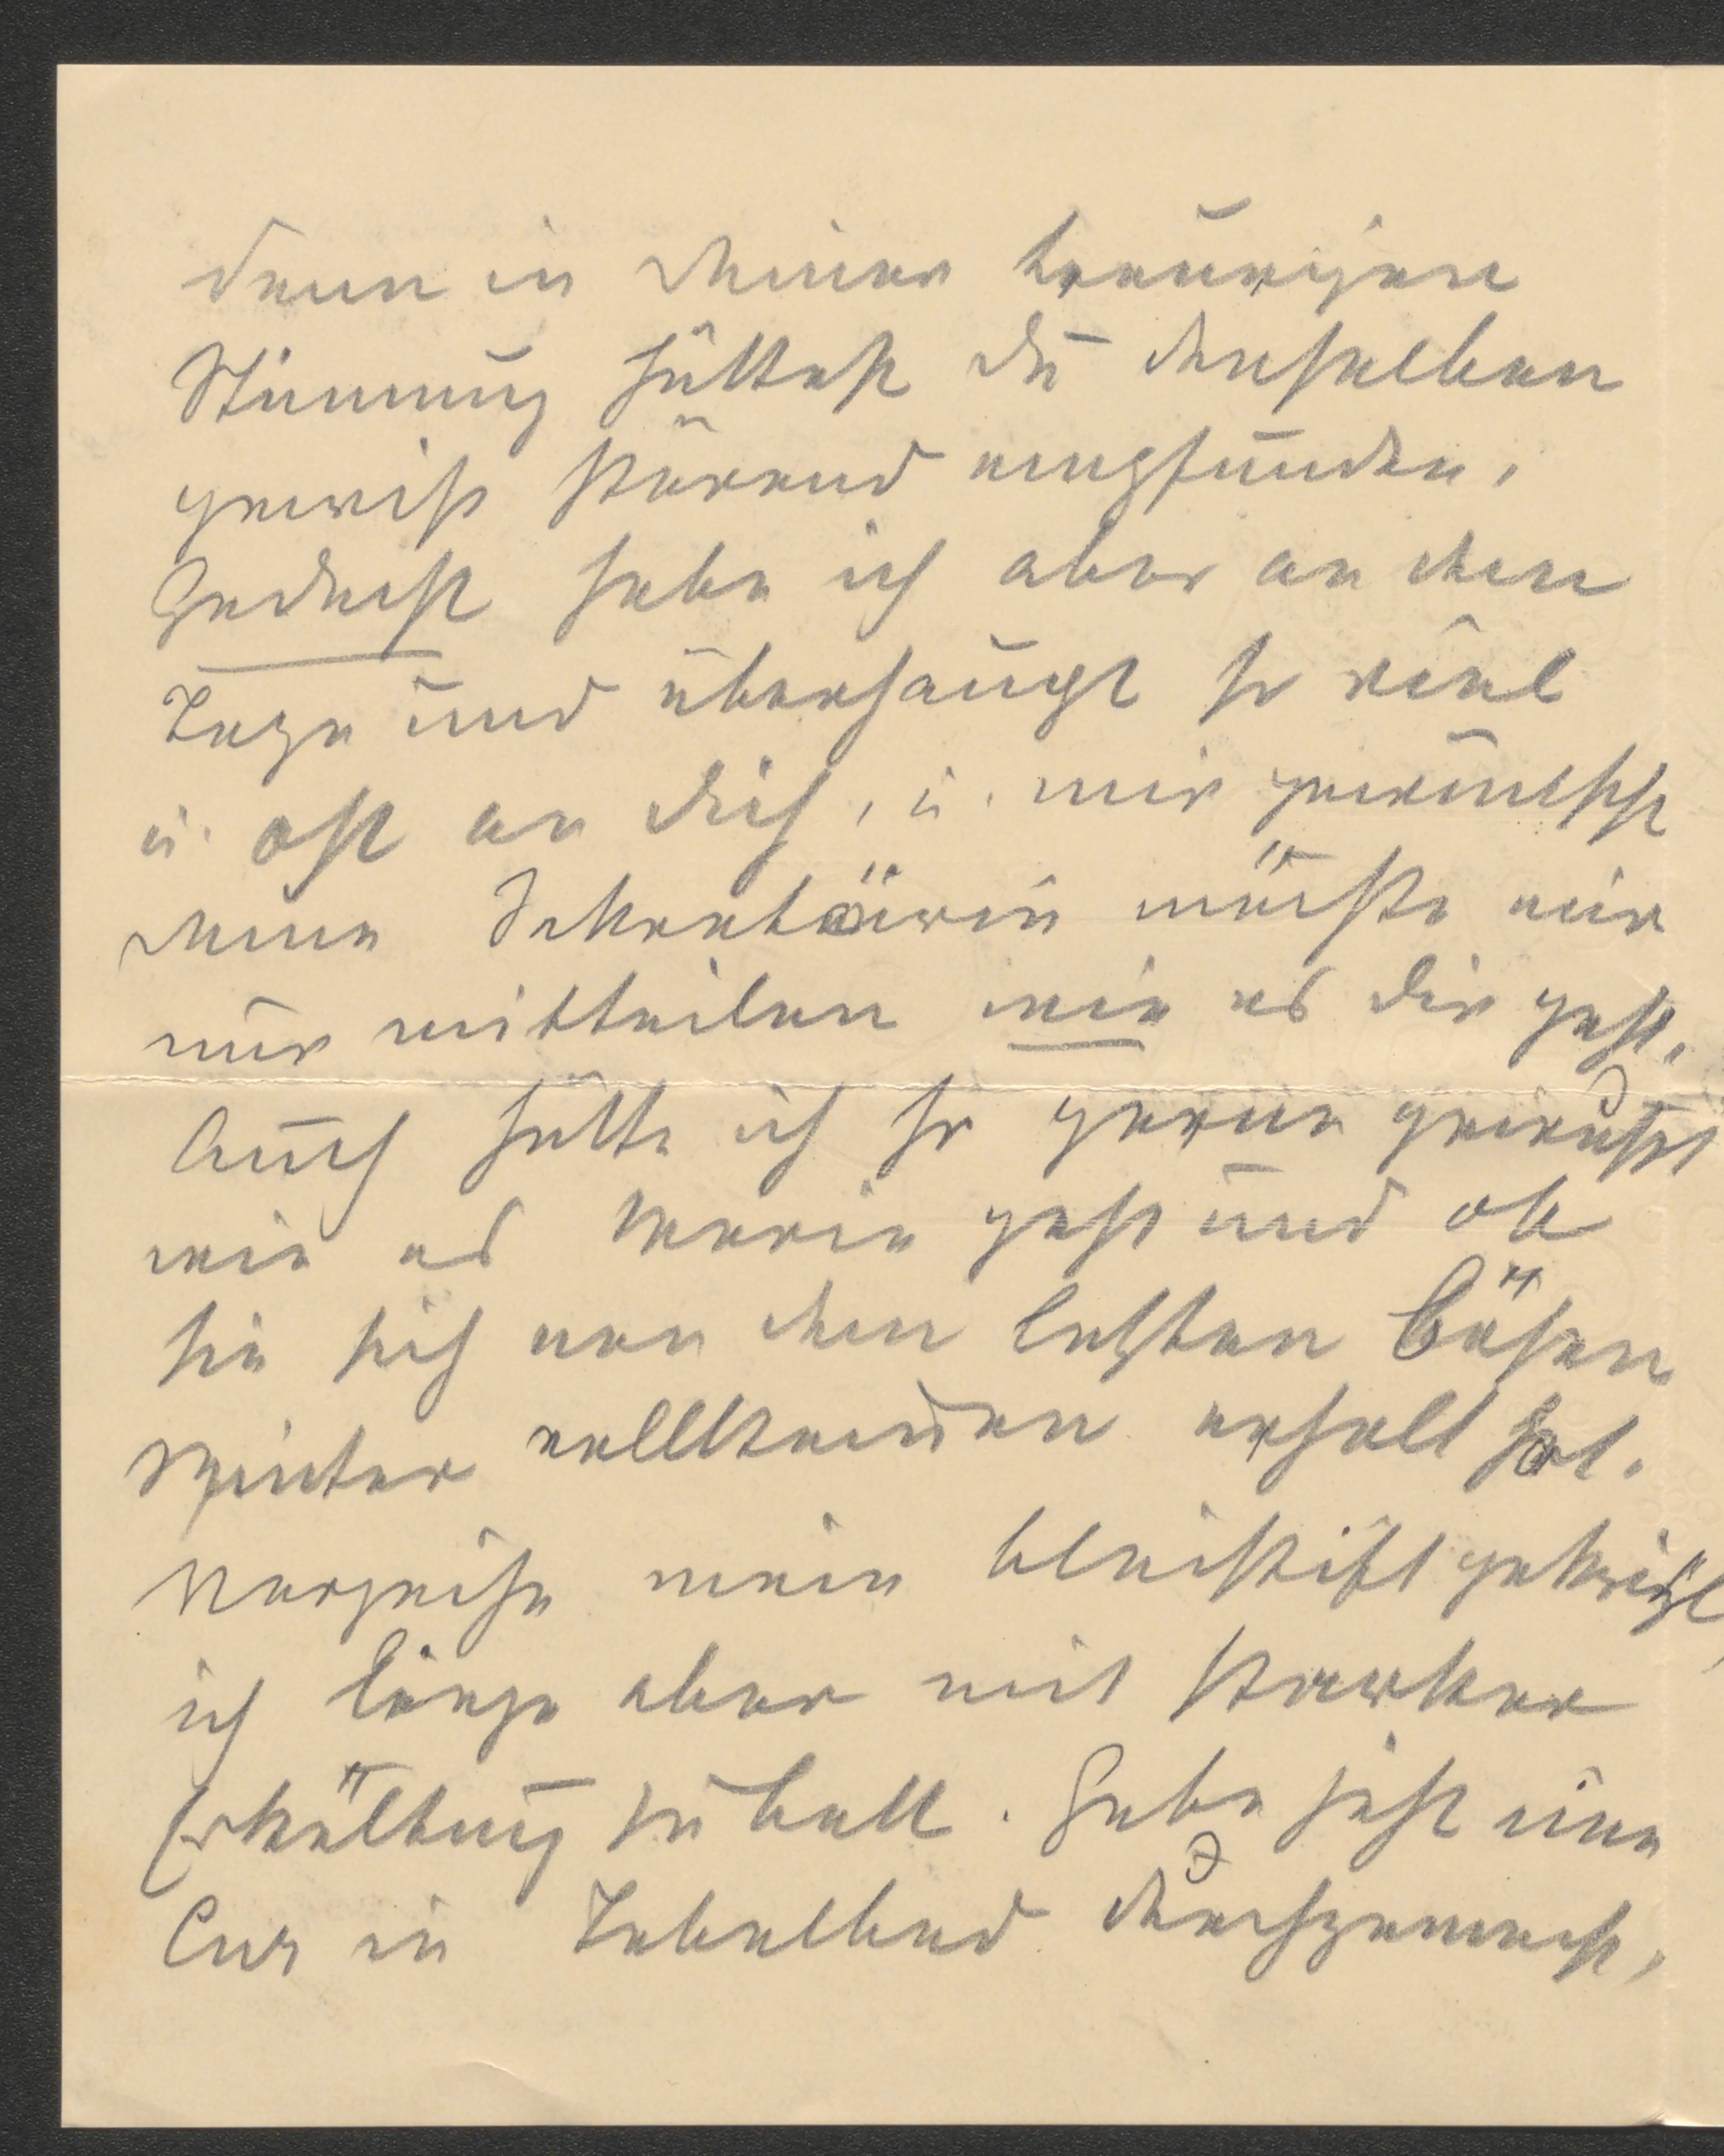 denn in Deiner traurigen
Stimmung hättest Du denselben
gewiss störend empfunden,
Gedacht habe ich aber an dem
Tage und überhaupt so viel
u. oft an Dich, u. mir gewünscht
Deine Sekretärin möchte mir
nur mitteilen wie es Dir geht.
Auch hätte ich so gerne gewusst
wie es Marie geht und ob
sie sich von dem letzten bösen
Winter vollkommen erholt hat.
Verzeihe mein bleistiftgekrizl,
ich liege aber mit starker
Erkältung zu bett. Habe jetzt eine
Cur in Tobelbad durchgemacht,